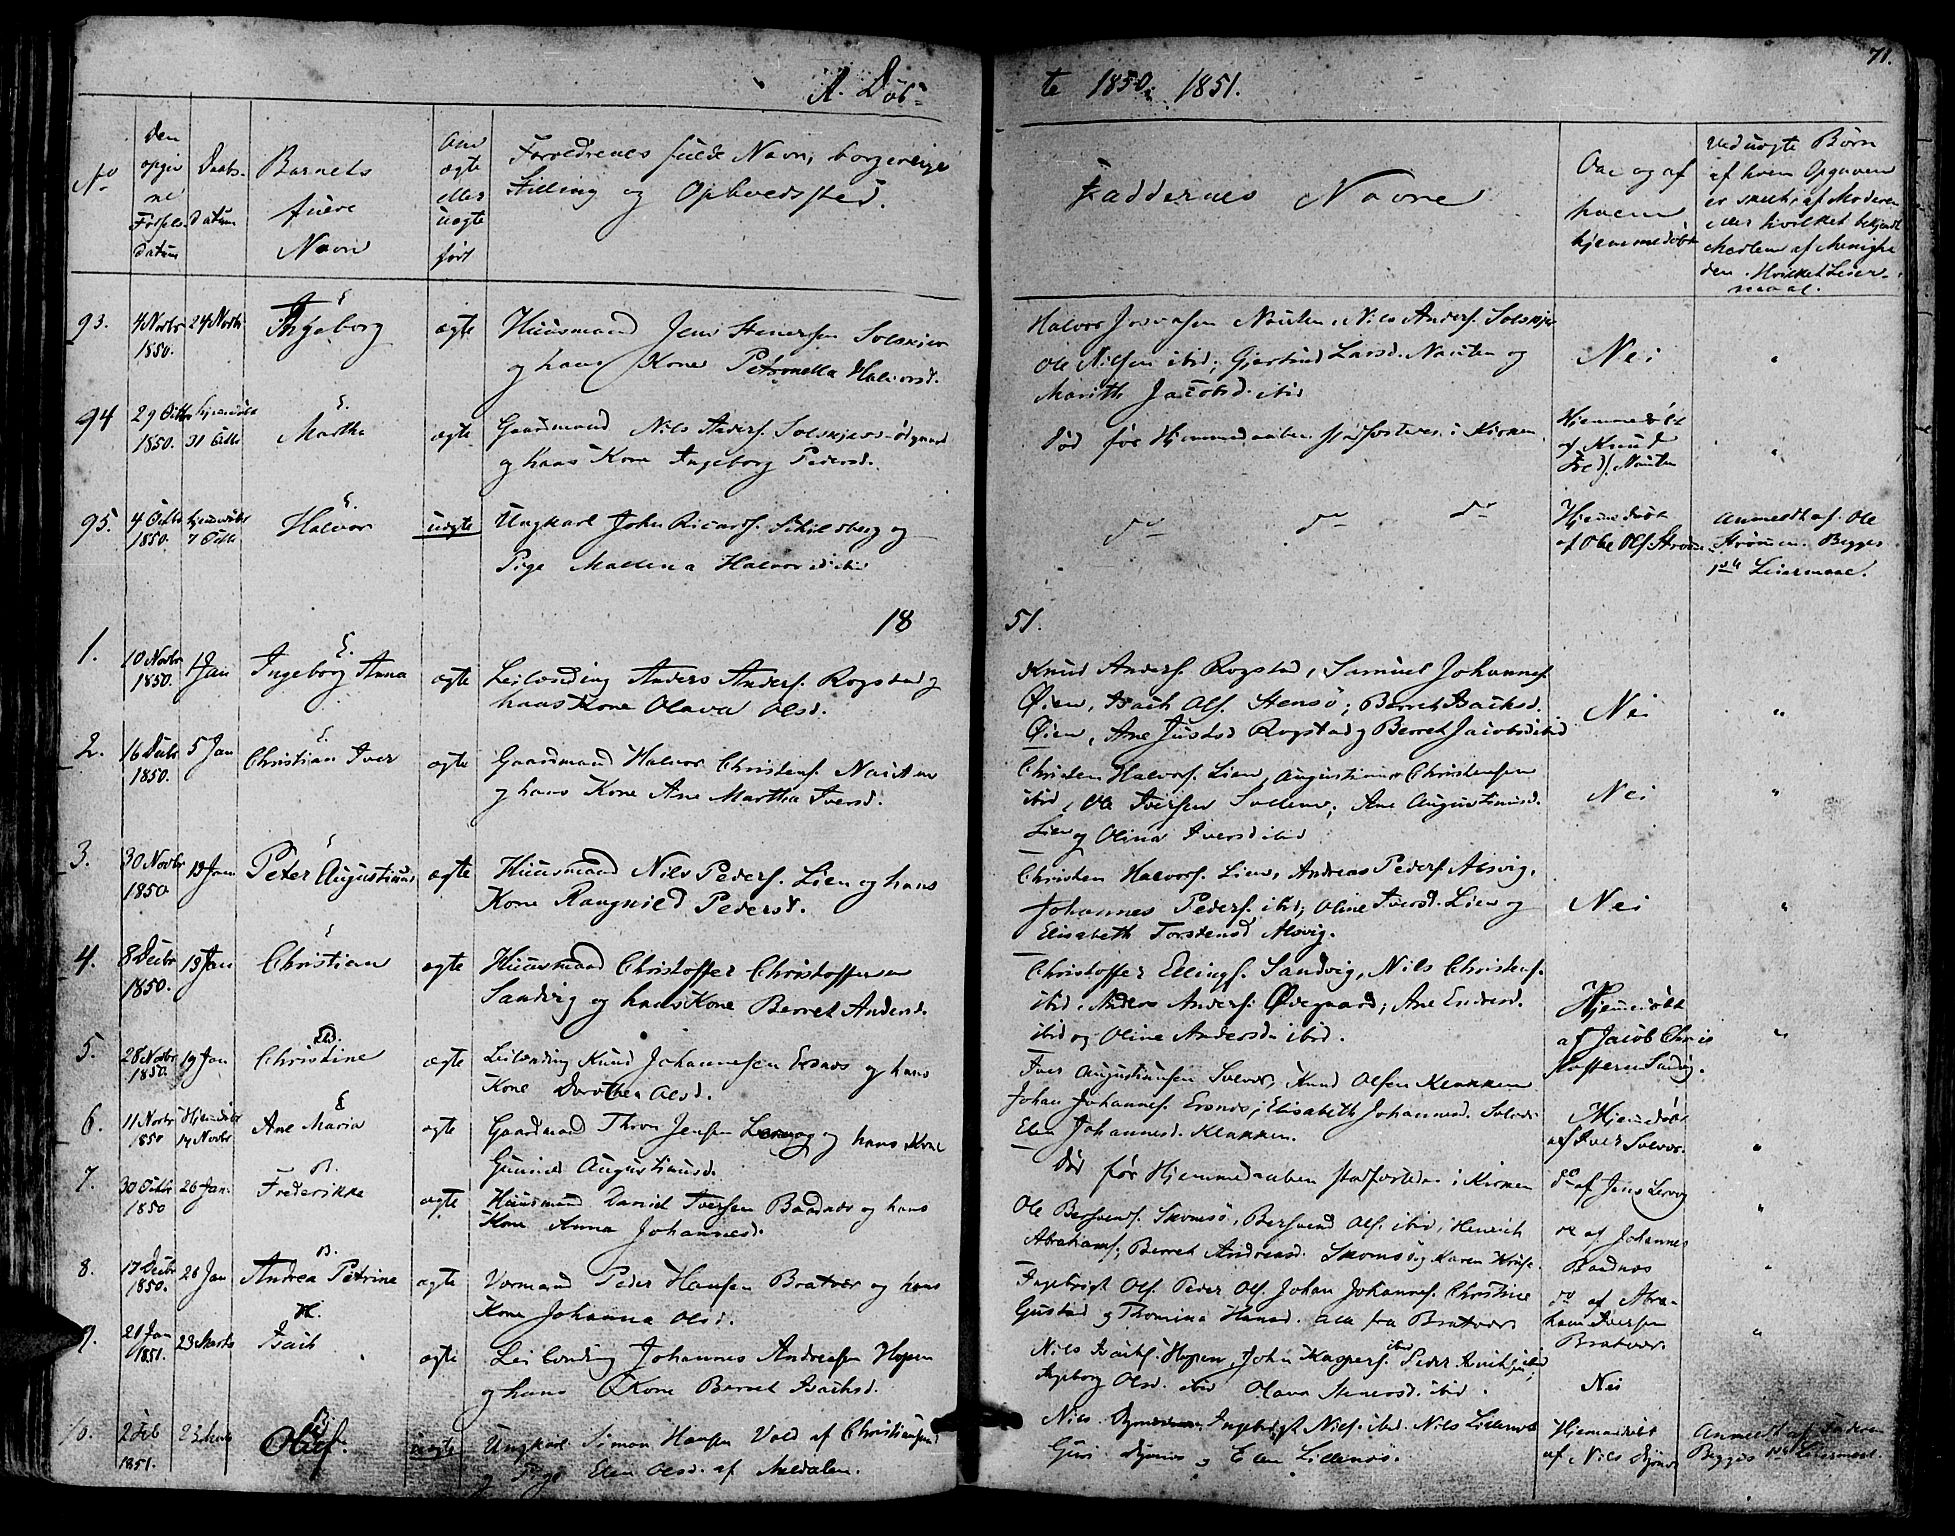 71.
A. Döb- te 1850. 1851.
No
Den opgivne Fødsels datum
Daabs- datum
Barnets fulde Navn
Om ægte eller uægte født
Forældrenes fulde Navn, borgerlige
Stilling og Opholdssted.
Faddernes Navne
Om og af hvem hjemmedøbt
Ved uægte Børn
af hvem Opgaven
er skeet, af Moderen
eller hvilket bekjendt
Medlem af Menighe
den. Hvilket Leier-
maal.
93. 4 Novbr 1850. 24 Novbr Ingeborg ægte Huusmand Jens Stenersen Solskjer
og hans Kone Petronella Halvorsd.
Halvor Nauten, Nils Anders. Solskjer
Ole Nilsen ibid; Gjertrud Larsd. Nauten og
Marith Jacobsd. ibid
Nei "
94 29 Octbr 1850. hjemmedøbt 31 Octb Martha ægte Gaardmand Nils Anders. Solskjers-ødegaard
og hans Kone Ingeborg Pedersd.
Død før Hjemmedaaben stadfæstedes i Kirken.
Hjemmedøbt
af Knud
Fred. Nauten "
95. 4 Octbr 1850. hjemmedøbt 7 Octb Halvor uægte Ungkarl John Ricards. Schilsberg og
Pige Mallena Halvorsd ibid
do do do
Hjemmedøbt
af Ole Ols. Strøm
Anmeldt af Ole
Strømen. Begges
1ste Leiermaal.
1851.
1. 10 Novbr 1850. 1 Jan Ingeborg Anna ægte Leilending Anders Anders. Rogstad og
hans Kone Olava Olsd.
Knud Anders. Rogstad, Samuel Johannes.
Øien, Isach Ols. Stensø; Berret Isachsd.
Øien, Ane Justsd Rogstad og Berret Jacobsd ibid
Nei "
2. 16 Decbr 1850. 5 Jan Christian Iver ægte Gaardmand Halvor Christens. Nauten
og hans Kone Ane Martha Iversd.
Christen Halvors. Lien, Augustinus Christensen
ibid, Ole Iversen; Ane Augustinusd.
Lien og Olina Iversd ibid
Nei "
3. 30 Novbr 1850 19 Jan Peter Augustinus ægte Huusmand Nils Peders. Lien og hans
Kone Rangnild Pedersd.
Christen Halvors. Lien, Andreas Peders. Alsvig,
Johannes Peders. ibid; Oline Iversd. Lien og
Elisabeth Torstensd Alsvig.
Nei "
4. 8 Decbr 1850. 19 Jan Christian ægte Huusmand Christoffer Christoffersen
Sandvig og hans Kone Berret Andersd.
Christoffer Ellings. Sandvig, Nils Christens.
ibid, Anders Anders. Ødegaard, Ane Endresd.
ibid og Oline Andersd. ibid.
Hjemmedøbt
af Jacob Chris
stoffersen Sandvig. "
5. 28 Novbr 1850. 19 Jan Christine ægte Leilending Knud Johannesen Ersnes og hans
Kone Dorothea Olsd.
Iver Augustinusen, Knud Olsen Klakken
Johan Johannes. Ersnes; Elisabeth Johannesd.
Elen Johannesd. Klakken.
Hjemmedøbt
af Iver "
6. 11 Novbr 1850 Hjemmedøbt 14 Novbr Ane Maria ægte Gaardmand Thron Jensen Lervog og hans Kone
Gunnild Augustinusd.
Død før Hjemmedaaben stadfæstedes i Kirken
do af Jens Lervog "
7. 30 Octbr 1850 26 Jan. Frederikke ægte Huusmand Daniel Iversen Baadnes og hans
Kone Anna Johannesd.
Ole Bersvends. Skomsø, Bersvend Ols. ibid, Henrich
Abrahams; Berret Andreasd. Skomsø og Karen
do af Johannes
Baadnes "
8. 17 Decbr 1850. 26 Jan Andrea Petrine ægte Vormand Peder Hansen Bratvær og hans
Kone Johanna Olsd.
Ingebrigt Ols. Peder Ols. Johan Johannes. Christine
Gustad og Thomina Hansd. alle fra Bratvær
do af Abra-
ham Iversen
Bratvær. "
9. 21 Jan 1851. 23 Marts Isach ægte Leilending Johannes Andreasen Hopen
og hans Kone Berret Isachsd.
Nils Isachs. Hopen, John Kaspers. ibid Peder Isachsen ibid;
Ingeborg Olsd. ibid Olava Stenersd. ibid.
Nei
10. 2 Feb 1851. 23 Marts Oluf. uægte Ungkarl Simon Hansen Vold af Christiansund
og Pige Elen Olsd. af Meldalen.
Nils Dyrnes, Ingebrigt Nils. ibid. Nils Lillenes
Guri Dyrnes og Elen Lillenes.
Hjemmedøbt
af Nils Dyrnes
Anmeldt af Faderen
Begges 1ste Leiermaal.